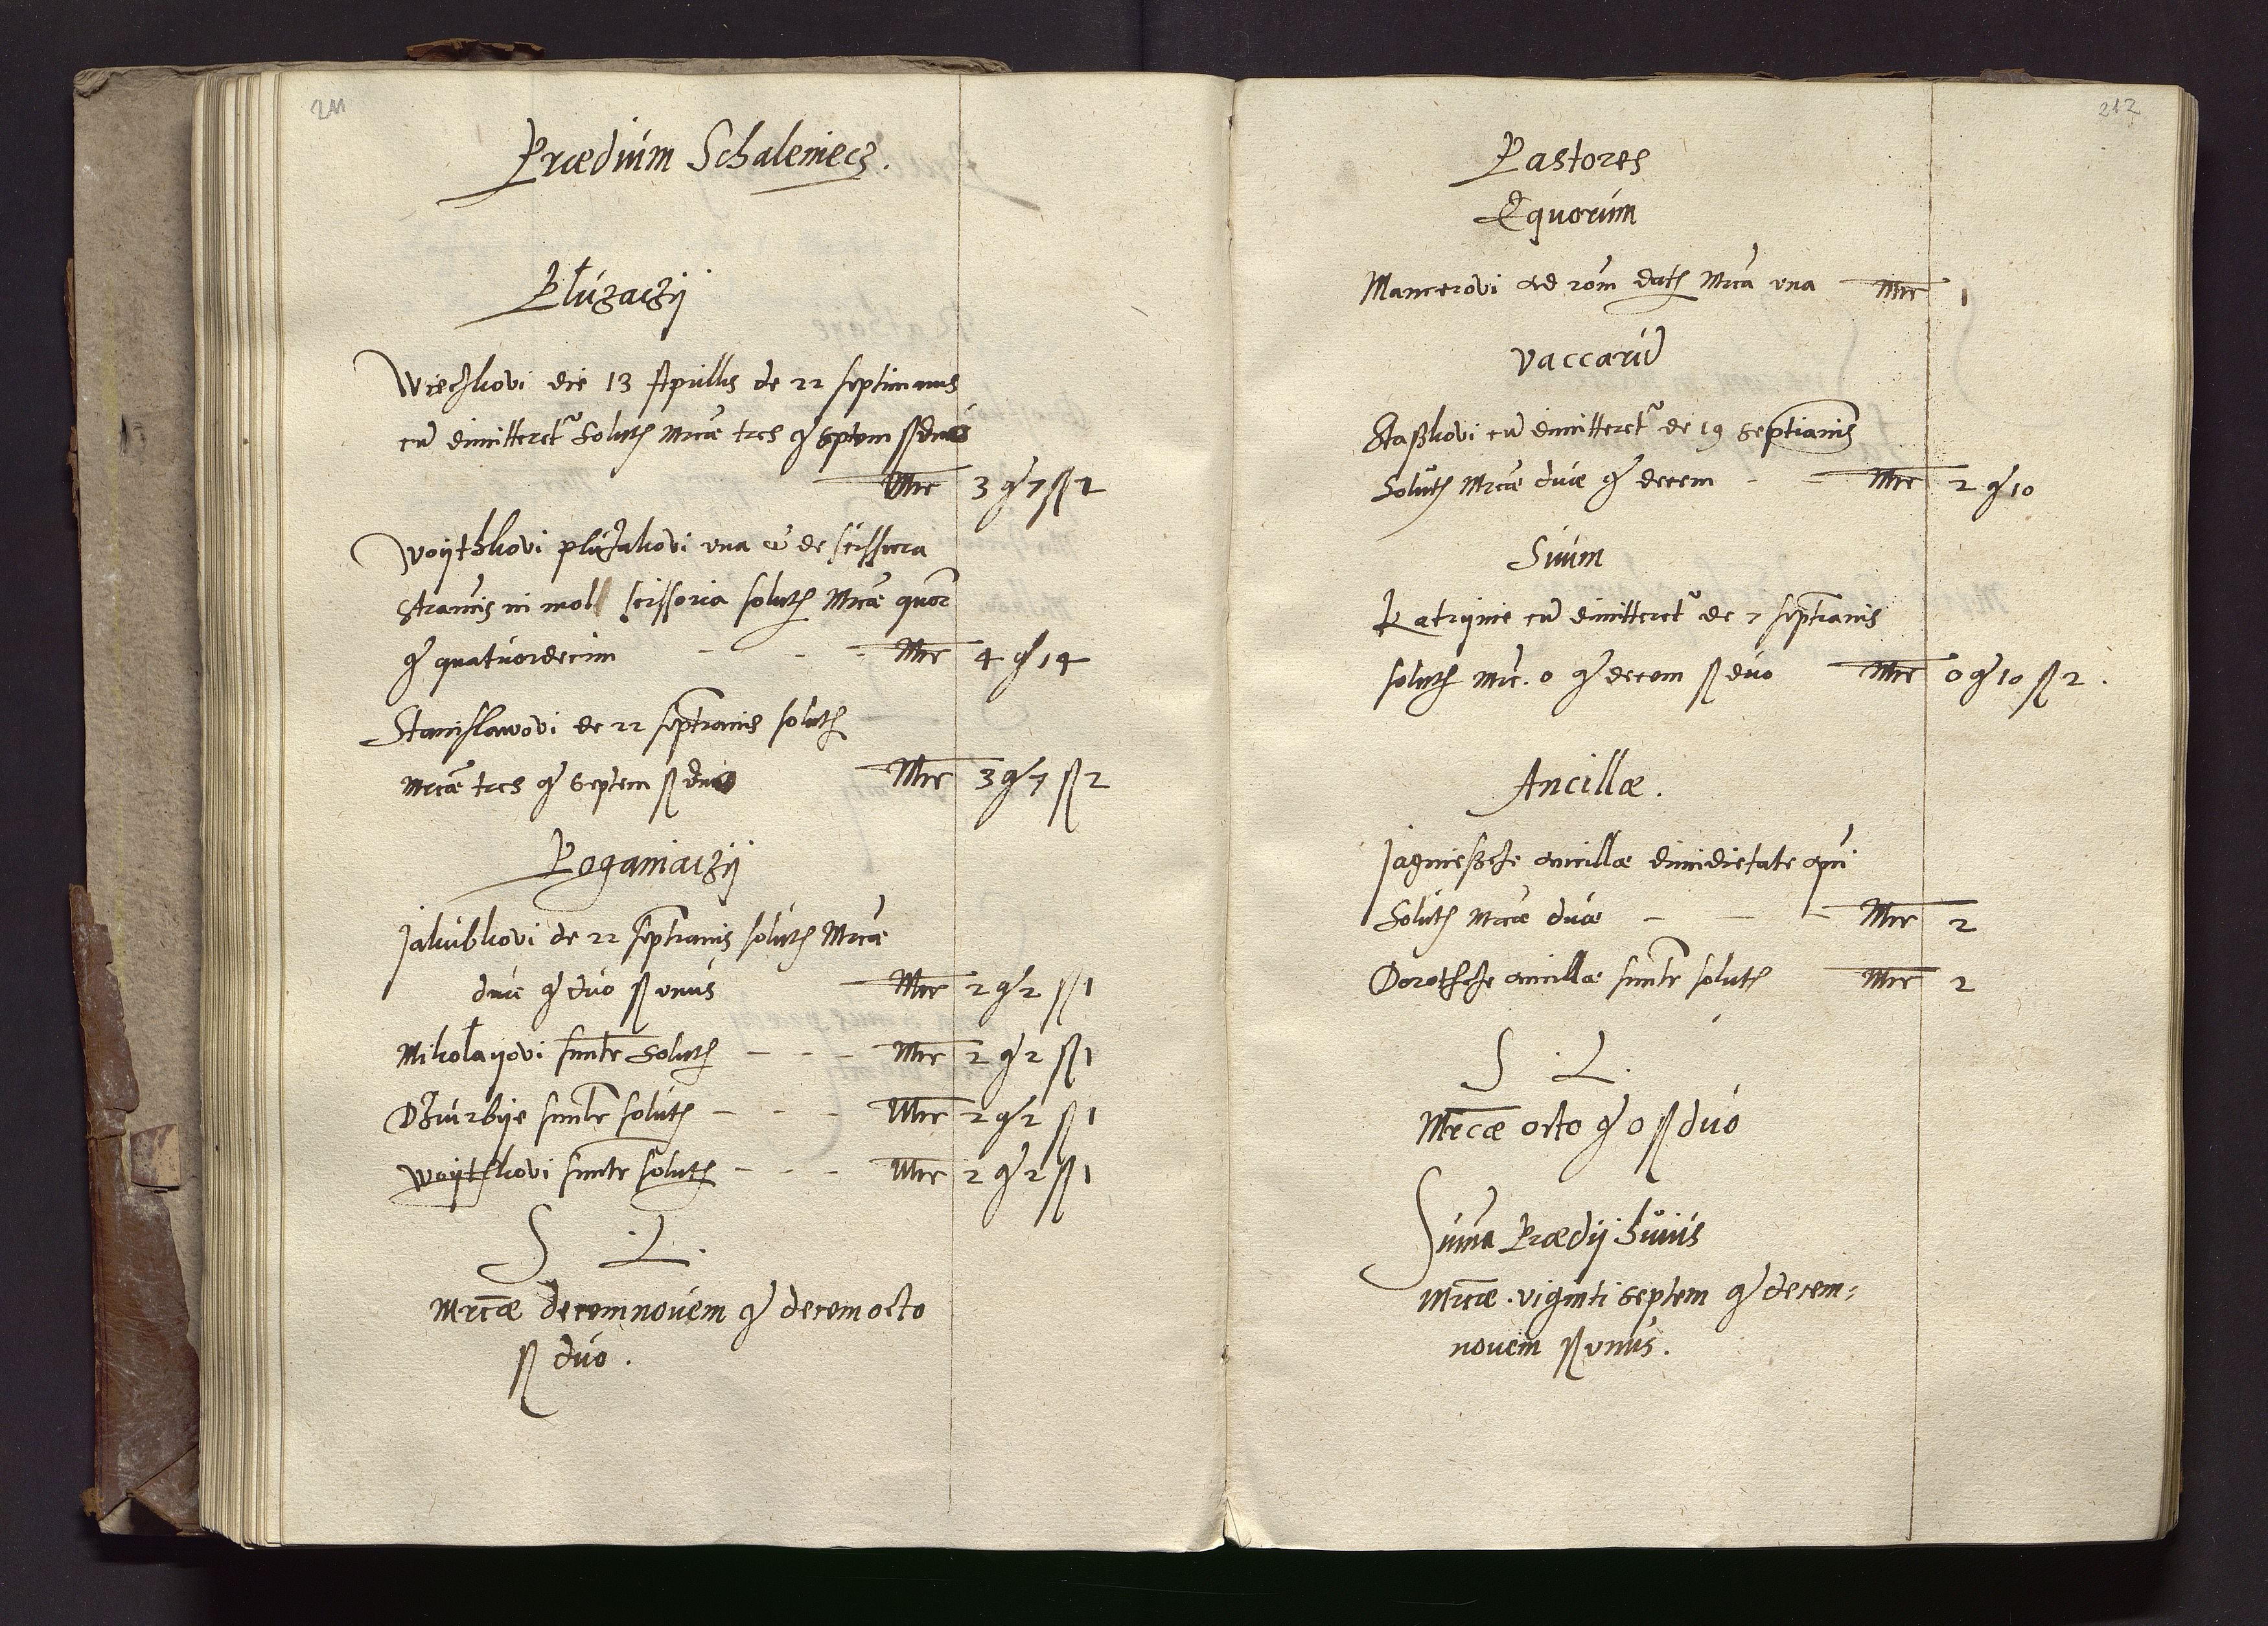 211
Prædium Schaleniecz.
Płuzaczÿ
Wieczkovi die 13 Aprillis de 22 septimanis
cu dimitteret Soluth Mrcæ tres gͬ septem ß duo
Mrc 3 gͬ 7 ß 2
Woÿthkovi plużakovi una cu de scissura
Straminis in scissoria soluth Mrcæ quor
gͬ quatuordecim - - - Mrc 4 gͬ 14
Stanislawovi de 22 septianis soluth
Mrcæ tres gͬ septem ß duo Mrc 3 gͬ 7 ß 2
Poganiaczÿ
Jakubkovi de 22 septianis soluth Mrcæ
duæ gͬ duo ß unus Mrc 2 gͬ 2 ß 1
Mikołaÿovi simlr Soluth - - - Mrc 2 gͬ 2 ß 1
Dziurbÿe simlr soluth - - - Mrc 2 gͬ 2 ß 1
Woÿthkovi simlr soluth - - - Mrc 2 gͬ 2 ß 1
S . L .
Mrcæ decemnovem gͬ decemocto
ß duo .
212
Pastores
Equorum
Mancerovi ad rom dath Mrca una Mrc 1
Vaccaru
Staßkovi cu dimitteret de 19 Septianis
Soluth Mrcæ duæ gͬ decem - - Mrc 2 gͬ 10
Suum
Katrÿnie cu dimitteret de 7 septianis
soluth Mrc . 0 gͬ decem ß duo Mrc 0 gͬ 10 ß 2 .
Ancillæ .
Jagnieszcze ancillæ dimidietate
Soluth Mrcæ duæ - - - Mrc 2
Dorothcze ancillæ simlr soluth Mrc 2
S . L .
Mrcæ octo gͬ 0 ß duo
Suma Prædÿ huius
Mrcæ . viginti septem gͬ decem=
novem ß unus .